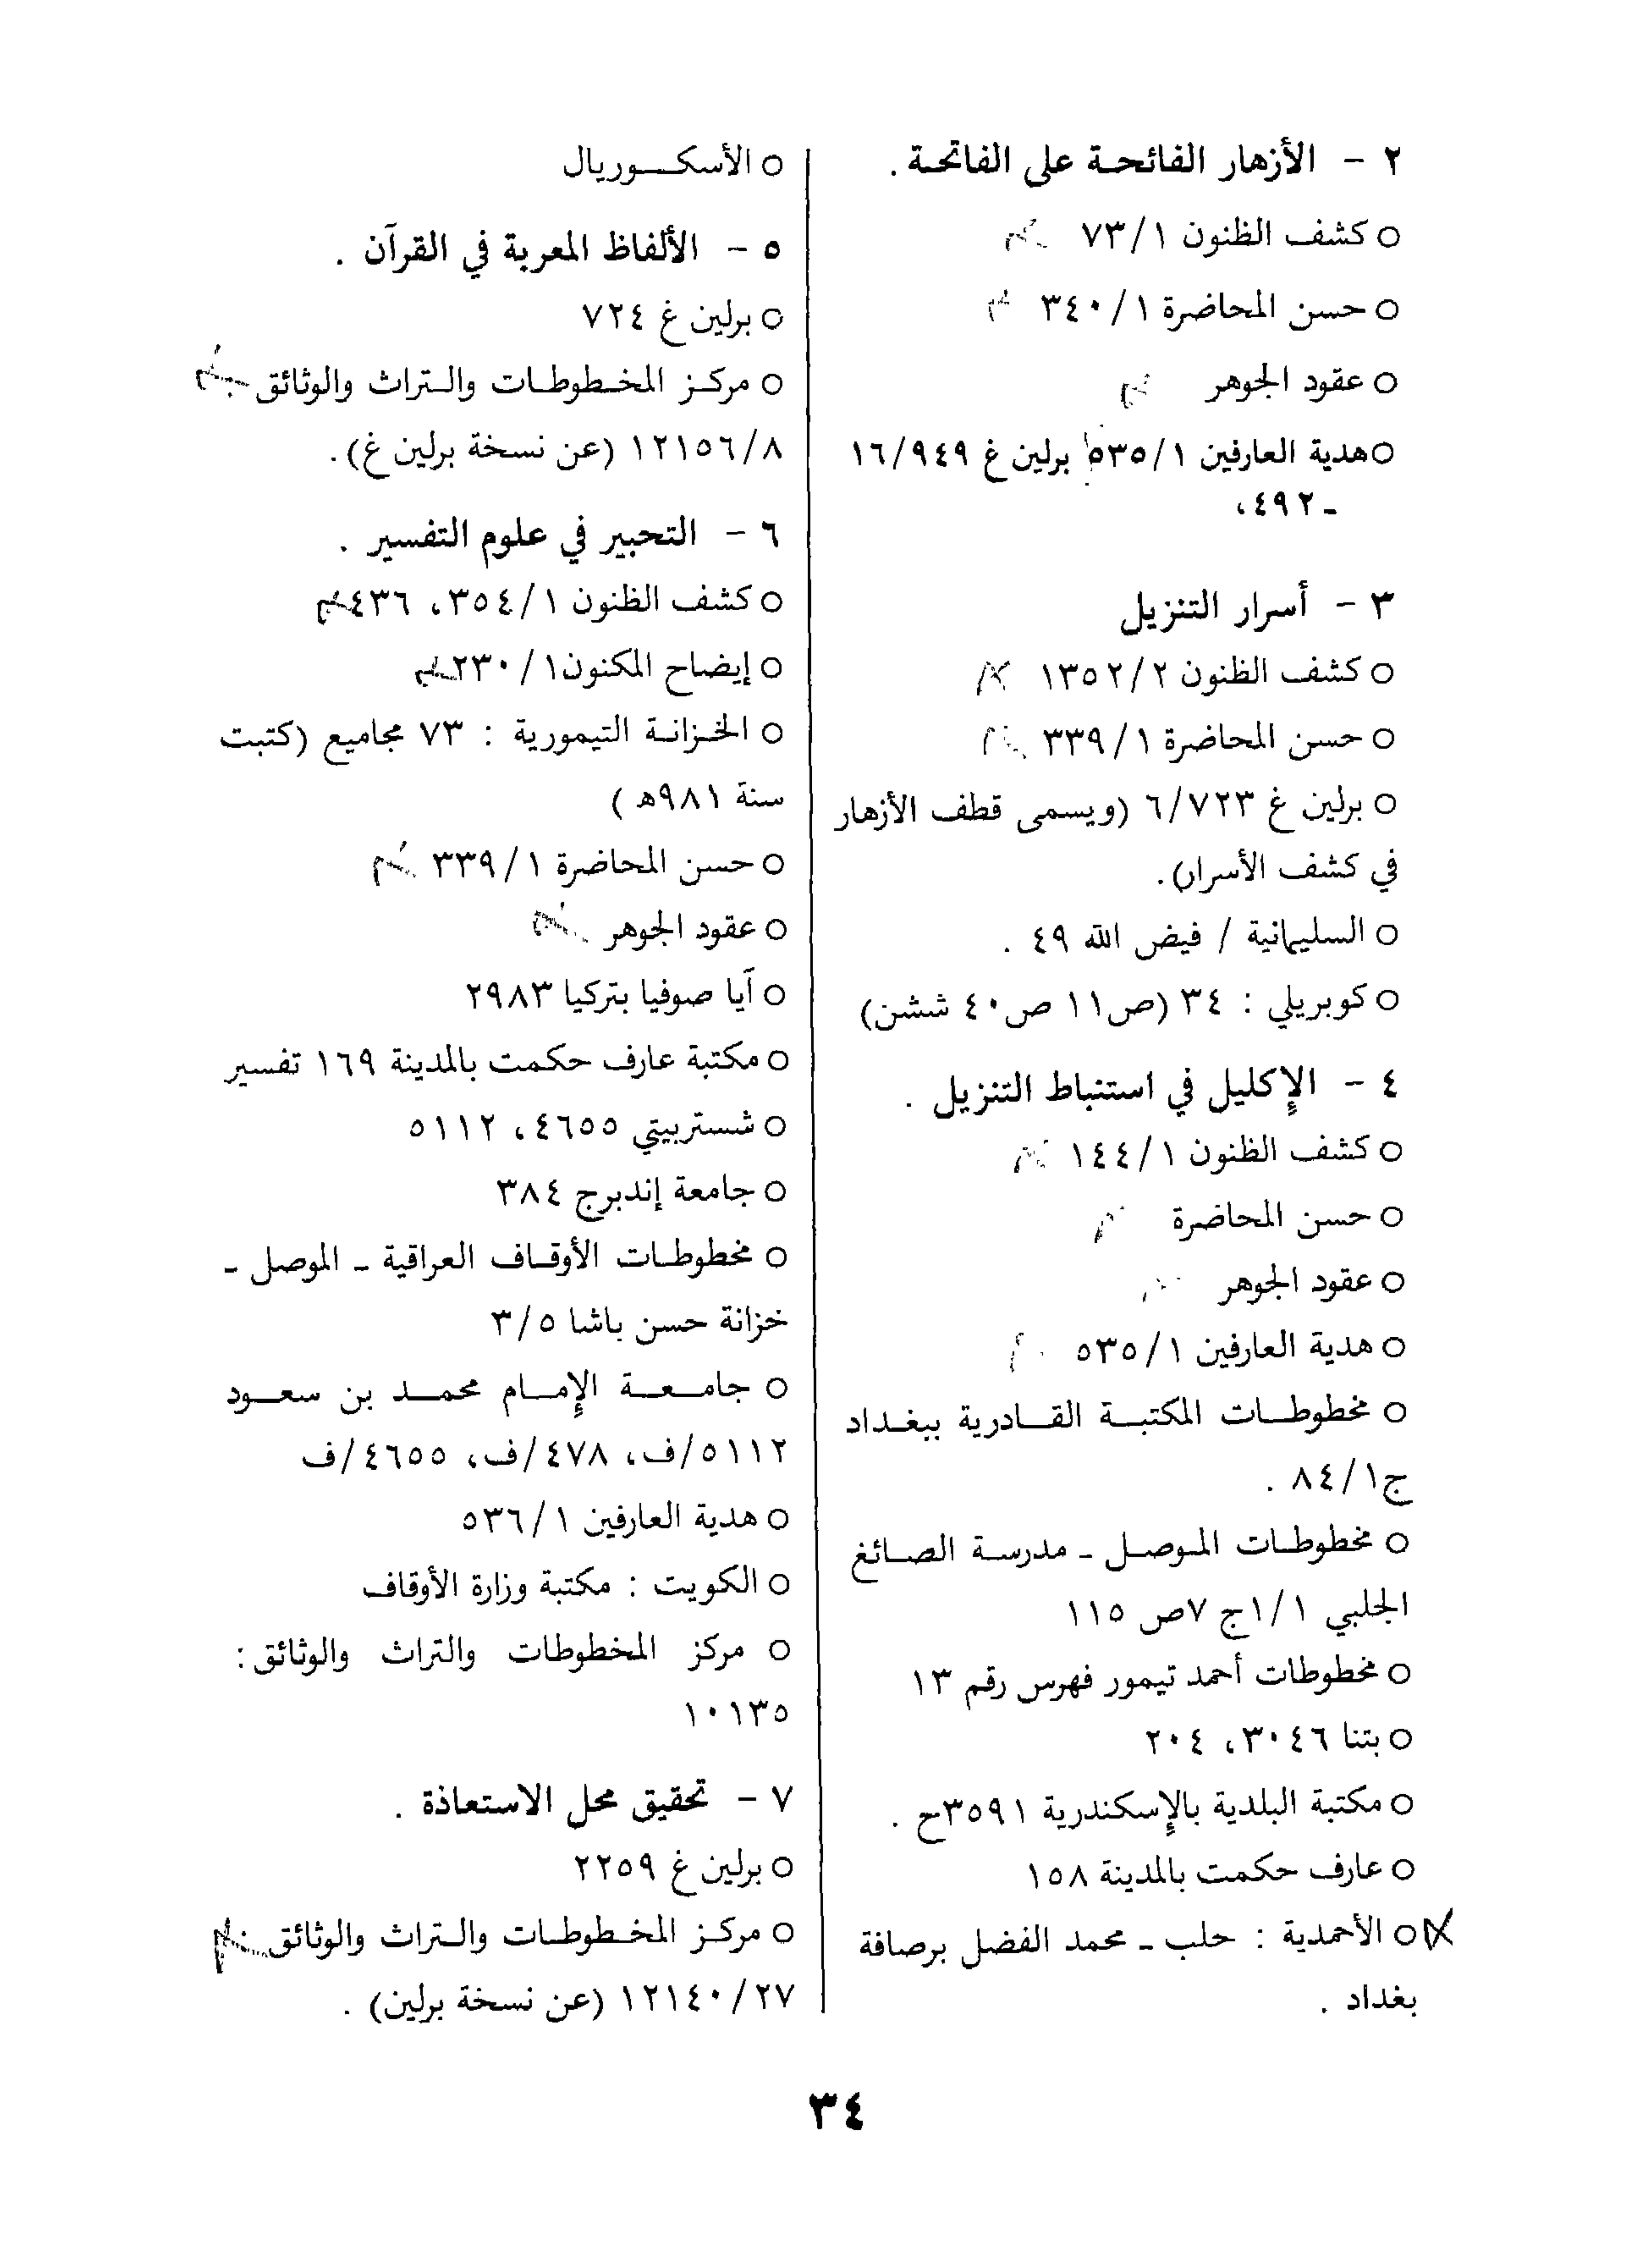 ٢ - الأزهار الفائحة على الفاتحة .
○ كشف الظنون ١/ ٧٣
○ حسن المحاضرة ١/ ٣٤٠
○ عقود الجوهر
○ هدية العارفين ١/ ٥٣٥ برلين غ ٩٤٩/ ١٦
ـ ٤٩٢،
٣ - أسرار التنزيل
○ كشف الظنون ٢/ ١٣٥٢
○ حسن المحاضرة ١/ ٣٣٩
○ برلين غ ٧٢٣/ ٦ (ويسمى قطف الأزهار
في كشف الأسرار).
○ السليمانية / فيض الله ٤٩ .
○ كوبريلي : ٣٤ (ص١١ ص٤٠ ششن)
٤ - الإكليل في استنباط التنزيل .
○ كشف الظنون ١/ ١٤٤
○ حسن المحاضرة
○ عقود الجوهر
○ هدية العارفين ١/ ٥٣٥
○ مخطوطات المكتبة القادرية ببغداد
ج١/ ٨٤ .
○ مخطوطات الموصل ـ مدرسة الصائغ
الجلبي ١/ ١ج ٧ص ١١٥
○ مخطوطات أحمد تيمور فهرس رقم ١٣
○ بتنا ٣٠٤٦، ٢٠٤
○ مكتبة البلدية بالإسكندرية ٣٥٩١ح .
○ عارف حكمت بالمدينة ١٥٨
○ الأحمدية : حلب ـ محمد الفضل برصافة
بغداد .
○ الأسكوريال
٥ - الألفاظ المعربة في القرآن .
○ برلين غ ٧٢٤
○ مركز المخطوطات والتراث والوثائق
١٢١٥٦/٨ (عن نسخة برلين غ).
٦ - التحبير في علوم التفسير .
○ كشف الظنون ١/ ٣٥٤، ٤٣٦
○ إيضاح المكنون١/ ٢٣٠
○ الخزانة التيمورية : ٧٣ مجاميع (كتبت
سنة ٩٨١هـ )
○ حسن المحاضرة ١/ ٣٣٩
○ عقود الجوهر
○ آيا صوفيا بتركيا ٢٩٨٣
○ مكتبة عارف حكمت بالمدينة ١٦٩ تفسير
○ شستربيتي ٤٦٥٥، ٥١١٢
○ جامعة إندبرج ٣٨٤
○ مخطوطات الأوقاف العراقية ـ الموصل ـ
خزانة حسن باشا ٥/ ٣
○ جامعة الإمام محمد بن سعود
٥١١٢/ف، ٤٧٨/ف، ٤٦٥٥/ف
○ هدية العارفين ١/ ٥٣٦
○ الكويت : مكتبة وزارة الأوقاف
○ مركز المخطوطات والتراث والوثائق:
١٠١٣٥
٧ - تحقيق محل الاستعاذة .
○ برلين غ ٢٢٥٩
○ مركز المخطوطات والتراث والوثائق
١٢١٤٠/٢٧ (عن نسخة برلين) .
٣٤